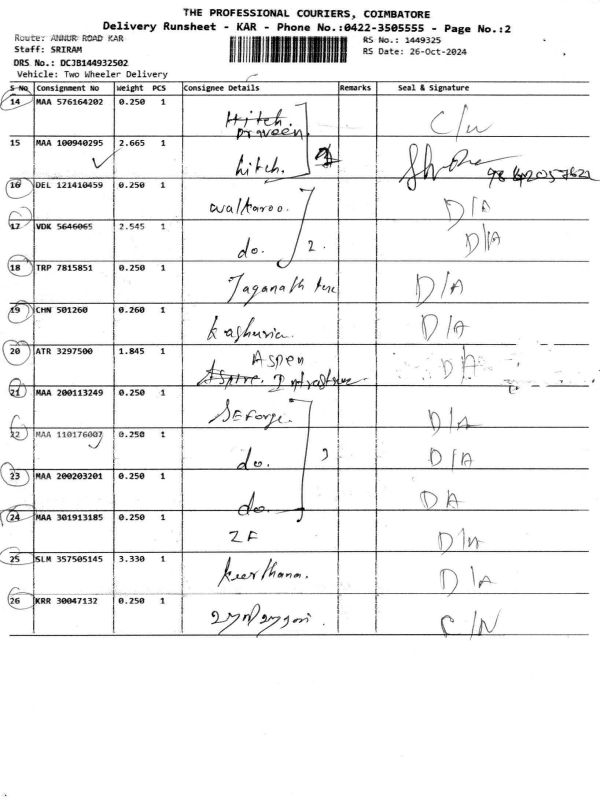 THE PROFESSIONAL COURIERS, COIMBATORE
Delivery Runsheet - KAR - Phone No.:0422-3505555 - Page No.:2
Route: ANNUR ROAD KAR
RS No.: 1449325
Staff: SRIRAM
RS Date: 26-Oct-2024
DRS No.: DCJB144932502
Vehicle: Two Wheeler Delivery
S No Consignment No Weight PCS Consignee Details Remarks Seal & Signature
14 MAA 576164202 0.250 1 Hitch. Praveen.
15 MAA 100940295 2.665 1 hitch.
16 DEL 121410459 0.250 1 Walkaroo. D/A
17 VDK 5646065 2.545 1 do. 2. D/A
18 TRP 7815851 0.250 1 Jaganath D/A
19 CHN 501260 0.260 1 D/A
20 ATR 3297500 1.845 1 Aspen D/A
21 MAA 200113249 0.250 1 SEForge. D/A
22 MAA 110176007 0.250 1 do. 3 D/A
23 MAA 200203201 0.250 1 do. DA
24 MAA 301913185 0.250 1 ZF D/A
25 SLM 357505145 3.330 1 Keerthana. D/A
26 KRR 30047132 0.250 1 C/N